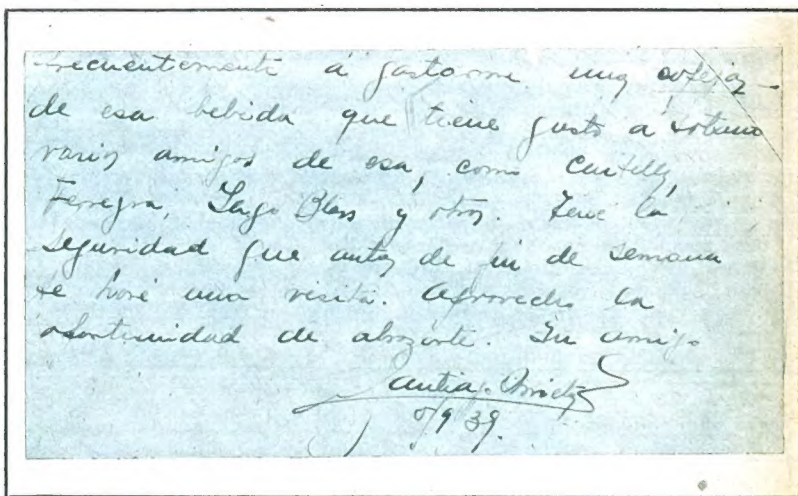 frecuentemente á gastarme unas
de esa bebida que tiene gusto á sótano
varios amigos de esa, como Castells,
Ferreyra, Lago Blass y otros. Tené la
seguridad que antes de fin de semana
te haré una visita. Aprovecho la
oportunidad de abrazarte. Tu amigo
Santiago Arrieta
5/9 39.